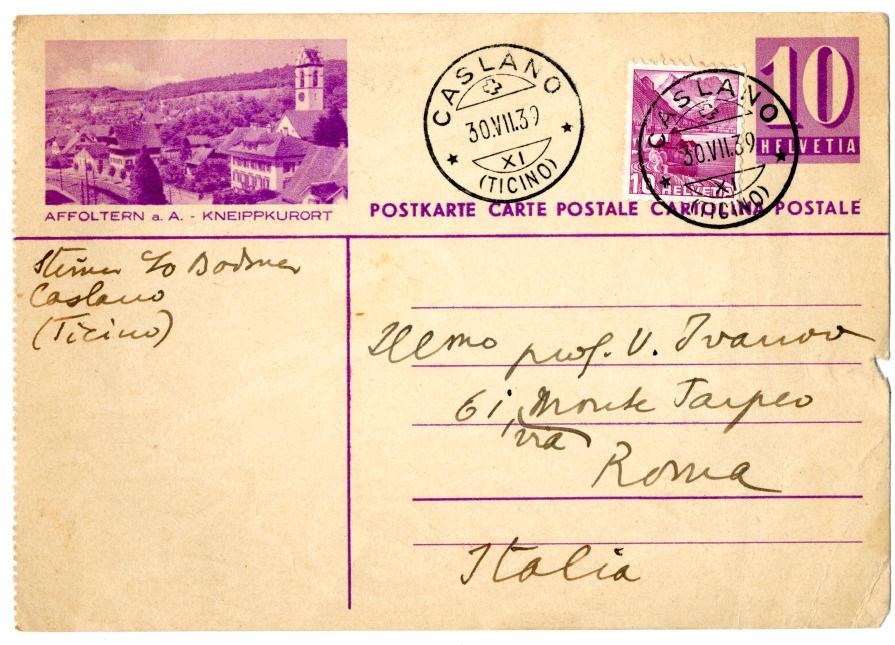 AFFOLTERN a. A. - KNEIPPKURORT
CASLANO
30.VII.39
XI
(TICINO)
CASLANO
30.VII.39
XI
(TICINO)
HELVETIA
10
HELVETIA
POSTKARTE CARTE POSTALE CARTOLINA POSTALE
Steiner c/o Bodmer
Caslano
(Ticino)
Illmo prof. V. Ivanov
61, Monte Tarpeo
via
Roma
Italia